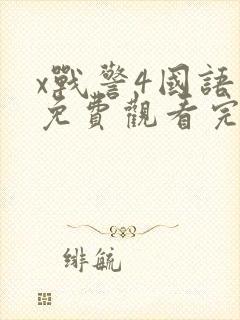 x戰警4國語
免費觀看完
緋毓